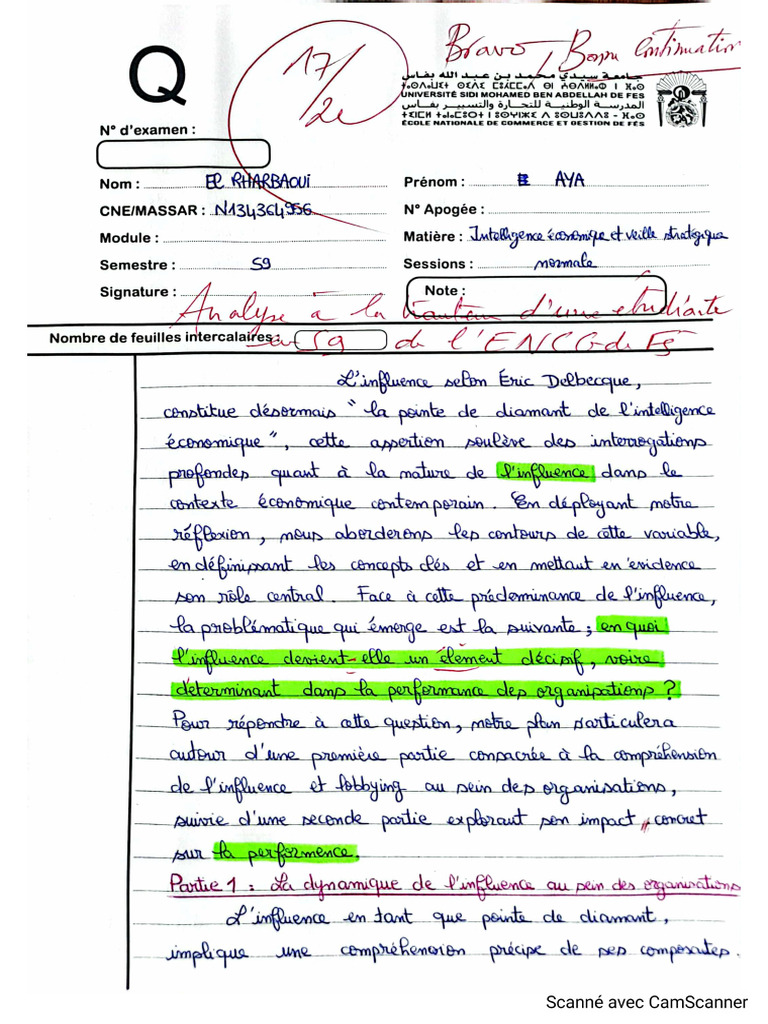 Q
17/20
Bravo, Bonne Continuation
جامعة سيدي محمد بن عبد الله بفاس
UNIVERSITÉ SIDI MOHAMED BEN ABDELLAH DE FES
المدرسة الوطنية للتجارة والتسيير بفاس
ÉCOLE NATIONALE DE COMMERCE ET GESTION DE FÈS
N° d'examen :
Nom : El RHARBAOUI
Prénom : AYA
CNE/MASSAR : N134364956
N° Apogée :
Module :
Matière : Intelligence économique et veille stratégique
Semestre : S9
Sessions : normale
Signature :
Note :
Analyse à la hauteur d'une étudiante
en S9 de l'ENCG de Fès
Nombre de feuilles intercalaires :
L'influence selon Éric Delbecque,
constitue désormais "la pointe de diamant de l'intelligence
économique", cette assertion soulève des interrogations
profondes quant à la nature de l'influence dans le
contexte économique contemporain. En déployant notre
réflexion, nous aborderons les contours de cette variable,
en définissant les concepts clés et en mettant en évidence
son rôle central. Face à cette prédominance de l'influence,
la problématique qui émerge est la suivante ; en quoi
l'influence devient-elle un élement décisif, voire
déterminant dans la performance des organisations ?
Pour répondre à cette question, notre plan s'articulera
autour d'une première partie consacrée à la compréhension
de l'influence et lobbying au sein des organisations,
suivie d'une seconde partie explorant son impact concret
sur la performence.
Partie 1 : La dynamique de l'influence au sein des organisations
L'influence en tant que pointe de diamant,
implique une compréhension précise de ses composates.
Scanné avec CamScanner